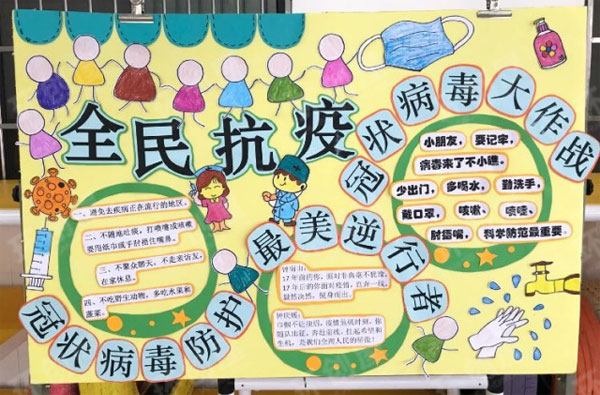 全民抗疫
冠状病毒大作战
小朋友，要记牢，
病毒来了不小瞧。
少出门，多喝水，勤洗手，
戴口罩，咳嗽、喷嚏，
肘窝嘴，科学防范最重要。
一、避免去疾病正在流行的地区。
二、不随地吐痰，打喷嚏或咳嗽
要用纸巾或手肘捂住嘴鼻。
三、不聚众聊天，不走亲访友，
在家休息。
四、不吃野生动物，多吃水果和
蔬菜。
冠状病毒防护
最美逆行者
钟南山：
17年前的你，面对非典毫不犹豫。
17年后的你面对疫情，
毅然决然，挺身而出。
钟庆嫒：
巾帼不让须眉，疫情危机时刻，你